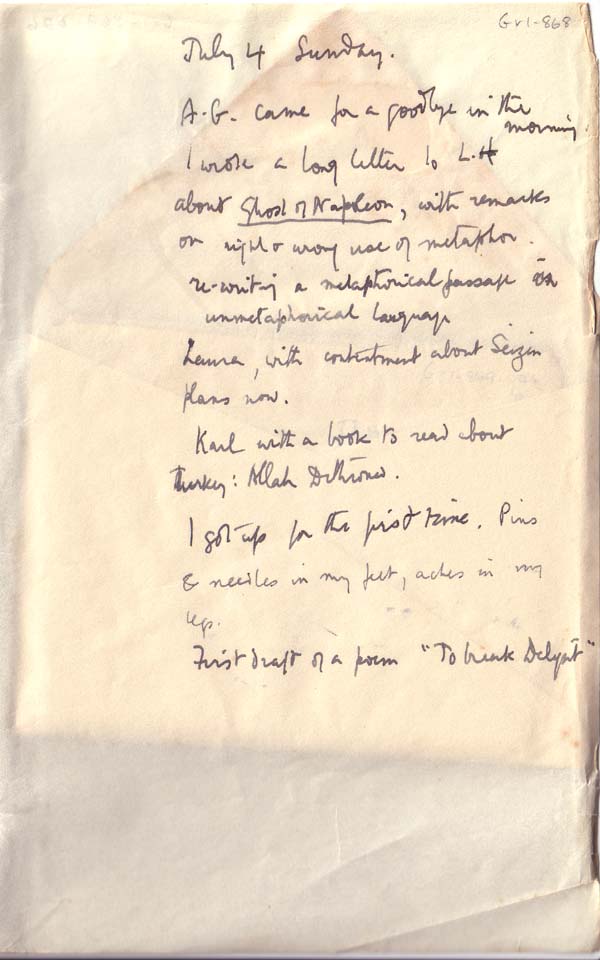 Gv1-868
July 4 Sunday.
A.G. came for a goodbye in the
morning.
I wrote a long letter to L.H
about Ghost of Napoleon, with remarks
on right & wrong use of metaphor.
re-writing a metaphorical passage in
unmetaphorical language
Laura, with contentment about Seizin
plans now.
Karl with a book to read about
Turkey: Allah Dethroned.
I got up for the first time. Pins
& needles in my feet, aches in my
legs.
First draft of a poem "To break Delight"